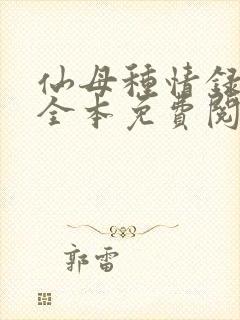 仙母種情録
全本免費閱
郭雷